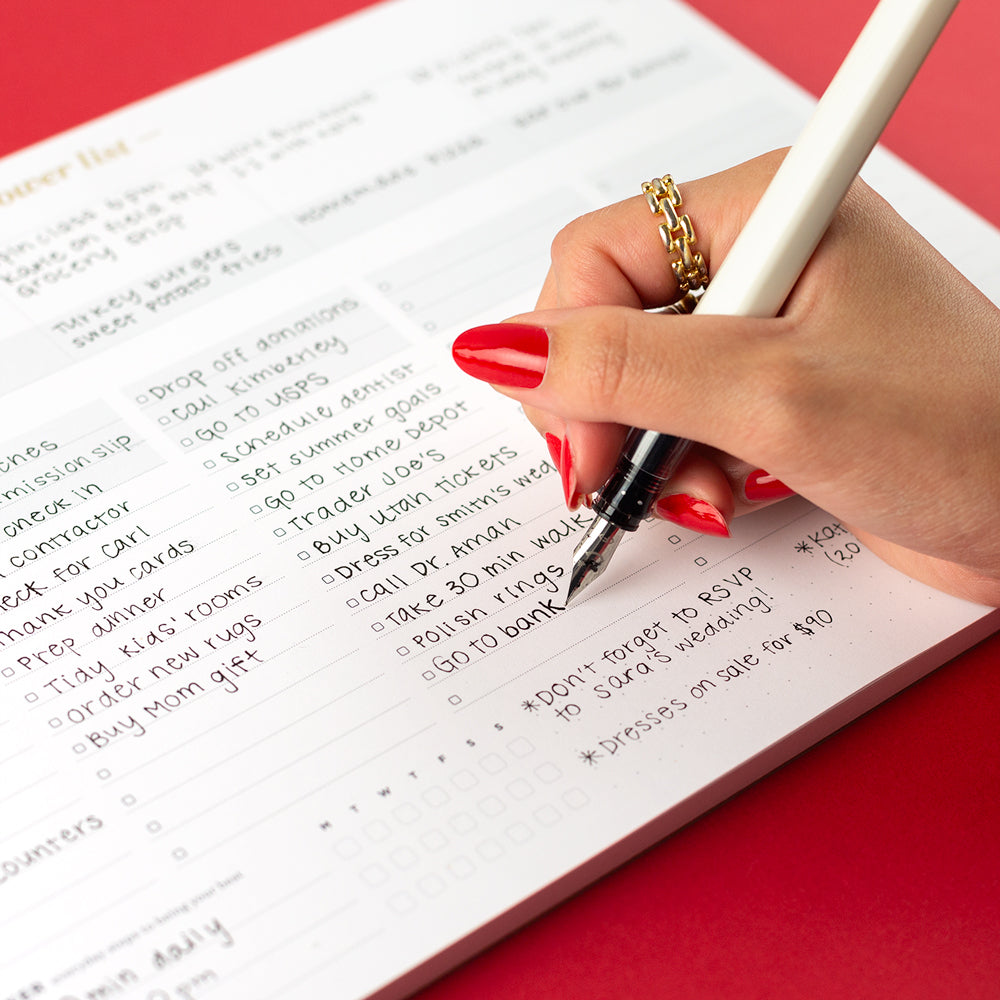 ower list
class 6pm
on field trip
grocery shop
1-3 with
Turkey burgers
sweet potato fries
Homemade Pizza
nches
mission slip
check in
contractor
eck for Carl
hank you cards
Prep dinner
Tidy kids' rooms
order new rugs
Buy Mom gift
Drop off donations
Call Kimberley
Go to USPS
Schedule dentist
set summer goals
Go to Home Depot
Trader Joe's
Buy Utah tickets
Dress for Smith's wed
Call Dr. Aman
Take 30 min walk
Polish rings
Go to bank
*Don't forget to RSVP
to Sara's wedding!
*Dresses on sale for $90
*Kat
(20
M T W T F S S
counters
everyday steps to being your best
min daily
pm